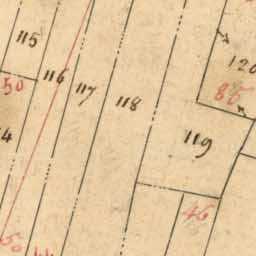 115
116
117
118
119
120
50
86
46